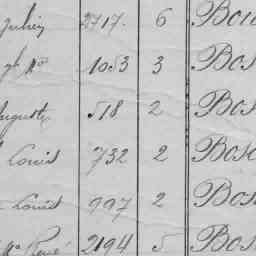 Julien 2717. 6 Bou
1053 3 Bos
Auguste 518 2 Bos
Louis 732 2 Bosc
Louis 997 2 Bos
René 2194 5 Bos